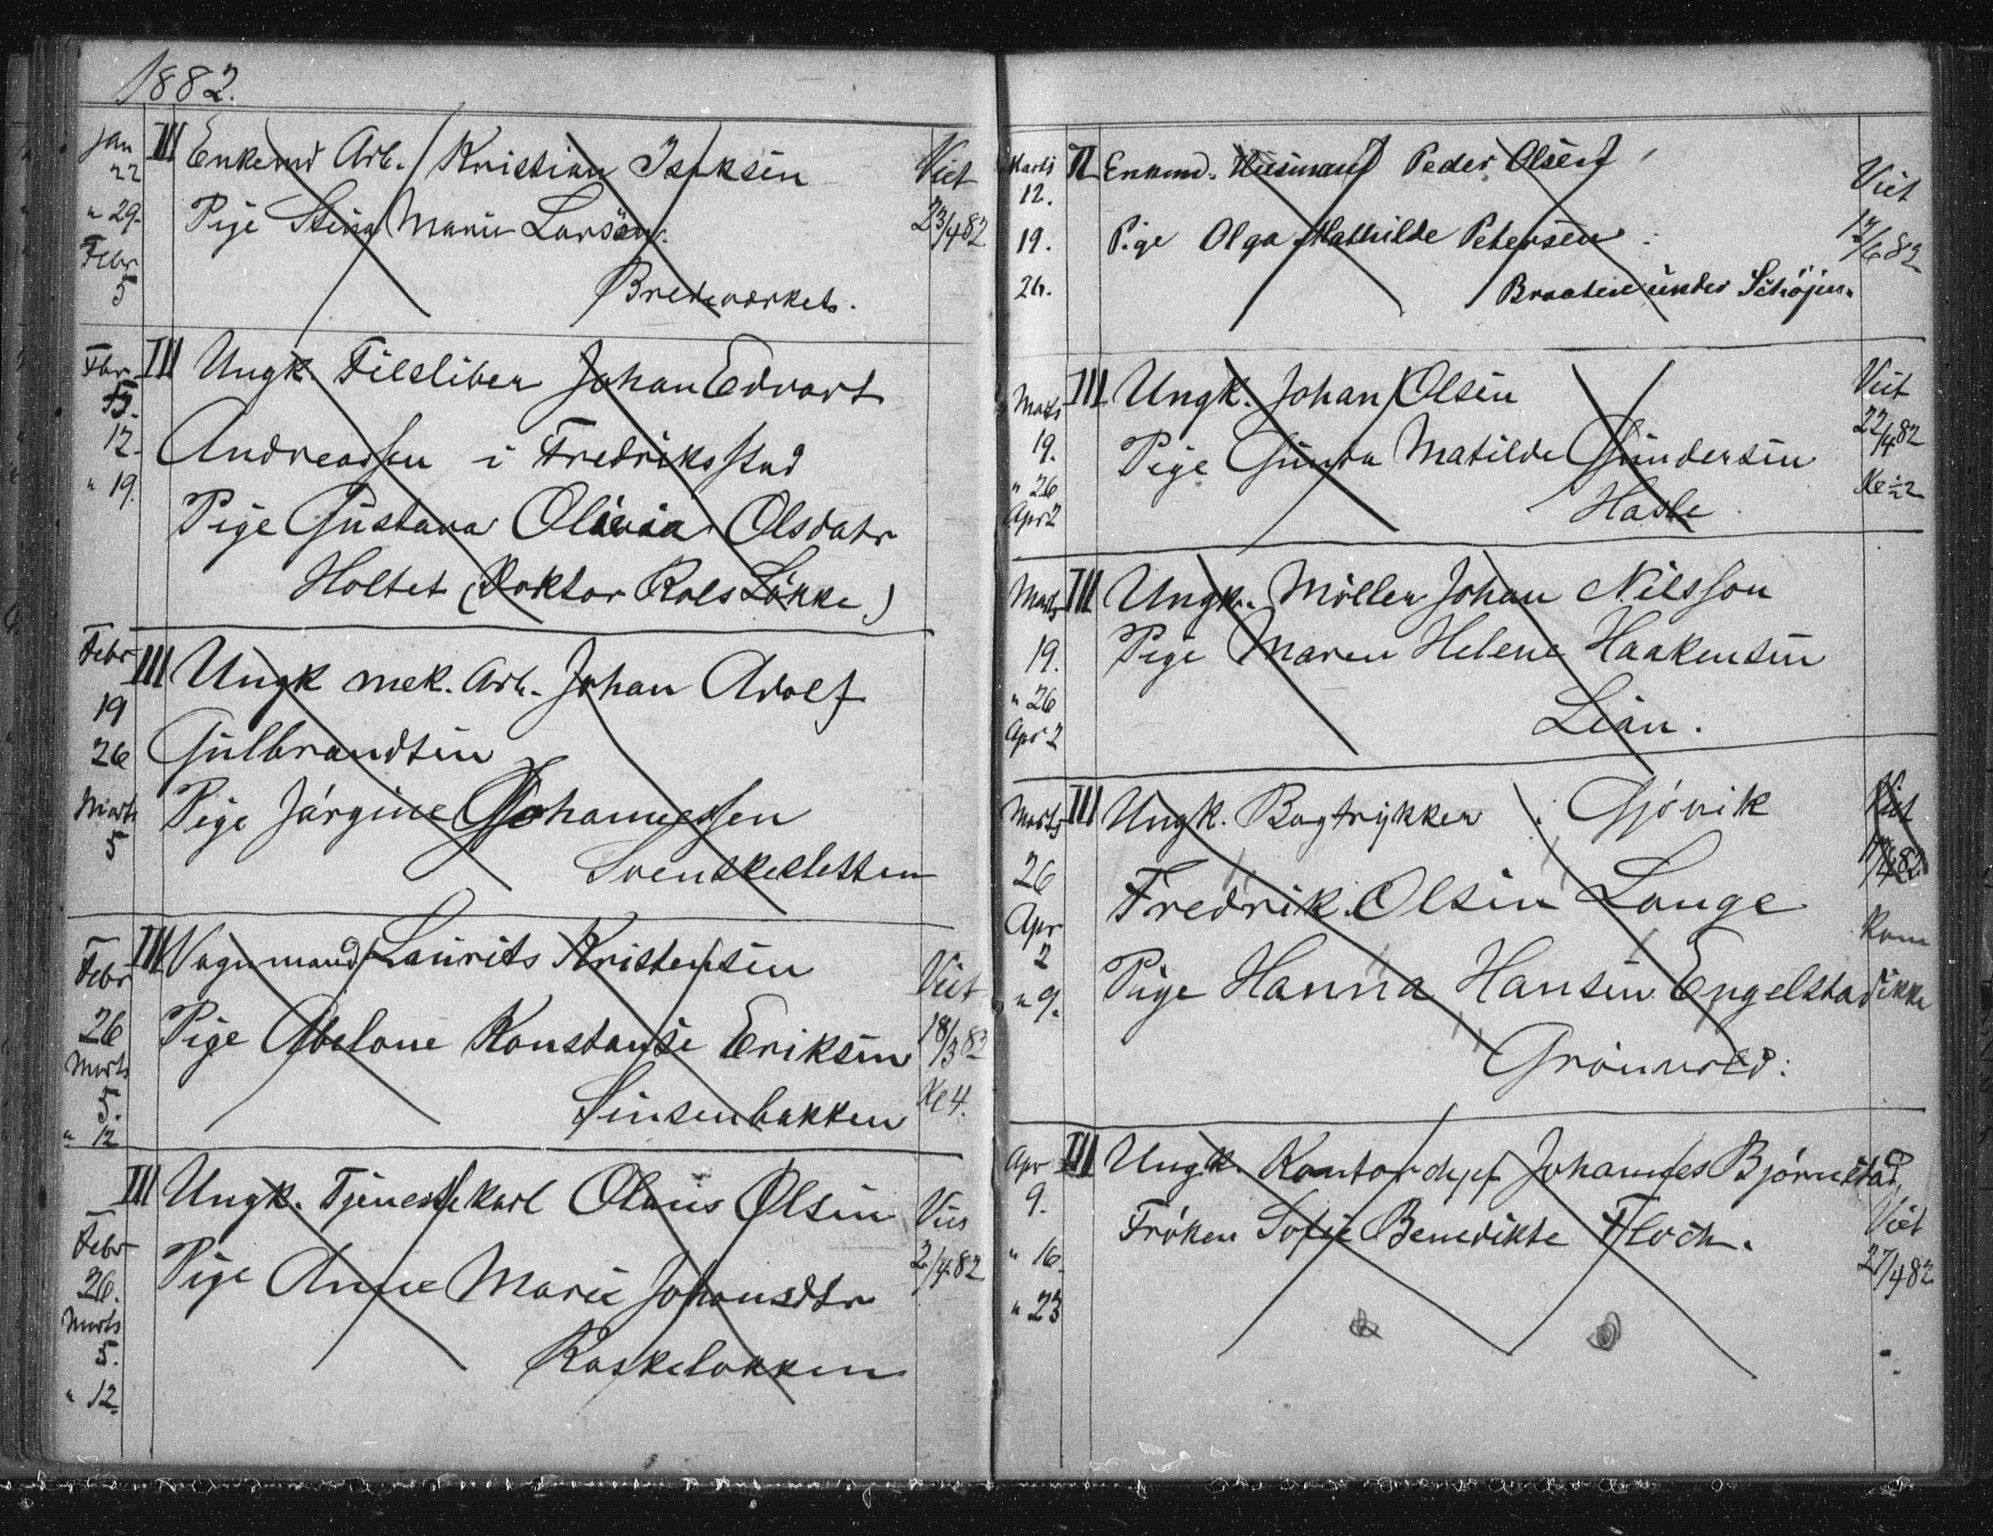 1882.
Jan III Enkemd Arb. Kristian Isaksen Viet
22
" 29. Pige Stina Marie Larsen. 23/4 82
Febr
5 Bredeværket.
Fbr III Ungk. Filsliber Johan Edvart
5.
12. Andreassen i Fredriksstad
" 19. Pige Gustava Olivia Olsdatr
Holtet (Doktor Rols Løkke)
Febr III Ungk mek. Arb. Johan Adolf
19
26 Gulbrandsen
Marts Pige Jørgine Johannessen
5 Svenskesletten
Febr III Vognmand Laurits Kristensen Viet
26 Pige Abelone Konstanse Eriksen 18/3 82
Marts Ke 4.
5. Sinsenbakken
" 12
III Ungk. Tjenestekarl Olaus Olsen Vies
Febr Pige Anne Marie Johansdtr 2/4 82
26.
Marts
5. Raskeløkken
" 12.
Marts II Enkmd. Husmand Peder Olsen Viet
12.
19. Pige Olga Mathilde Petersen 82
26. Braaten under Schøjen.
Marts III Ungk. Johan Olsen Viet
19. Pige Gunda Matilde Gundersen 22/4 82
" 26 Hasle
Apr 2
Marts III Ungk. Møller Johan Nilsson
19. Pige Maren Helene Haakensen
" 26 Lian.
Apr 2
Marts III Ungk. Bogtrykker Gjøvik Viet
26 Fredrik Olsen Lange
Apr Kom
2 Pige Hanna Hansen Engelstad ikke
" 9. Grønvold.
Apr III Ungk. Kontorchef Johannes Bjørnstad
9. Frøken Sofie Benedikte Floch. Viet
" 16. 27/4 82
" 23